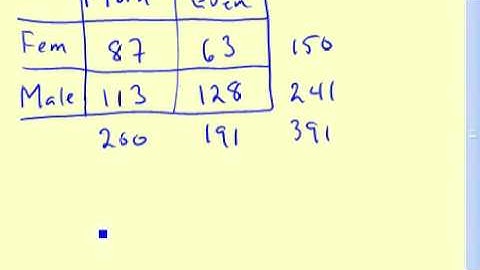 Even
Fem 87 63 150
Male 113 128 241
200 191 391